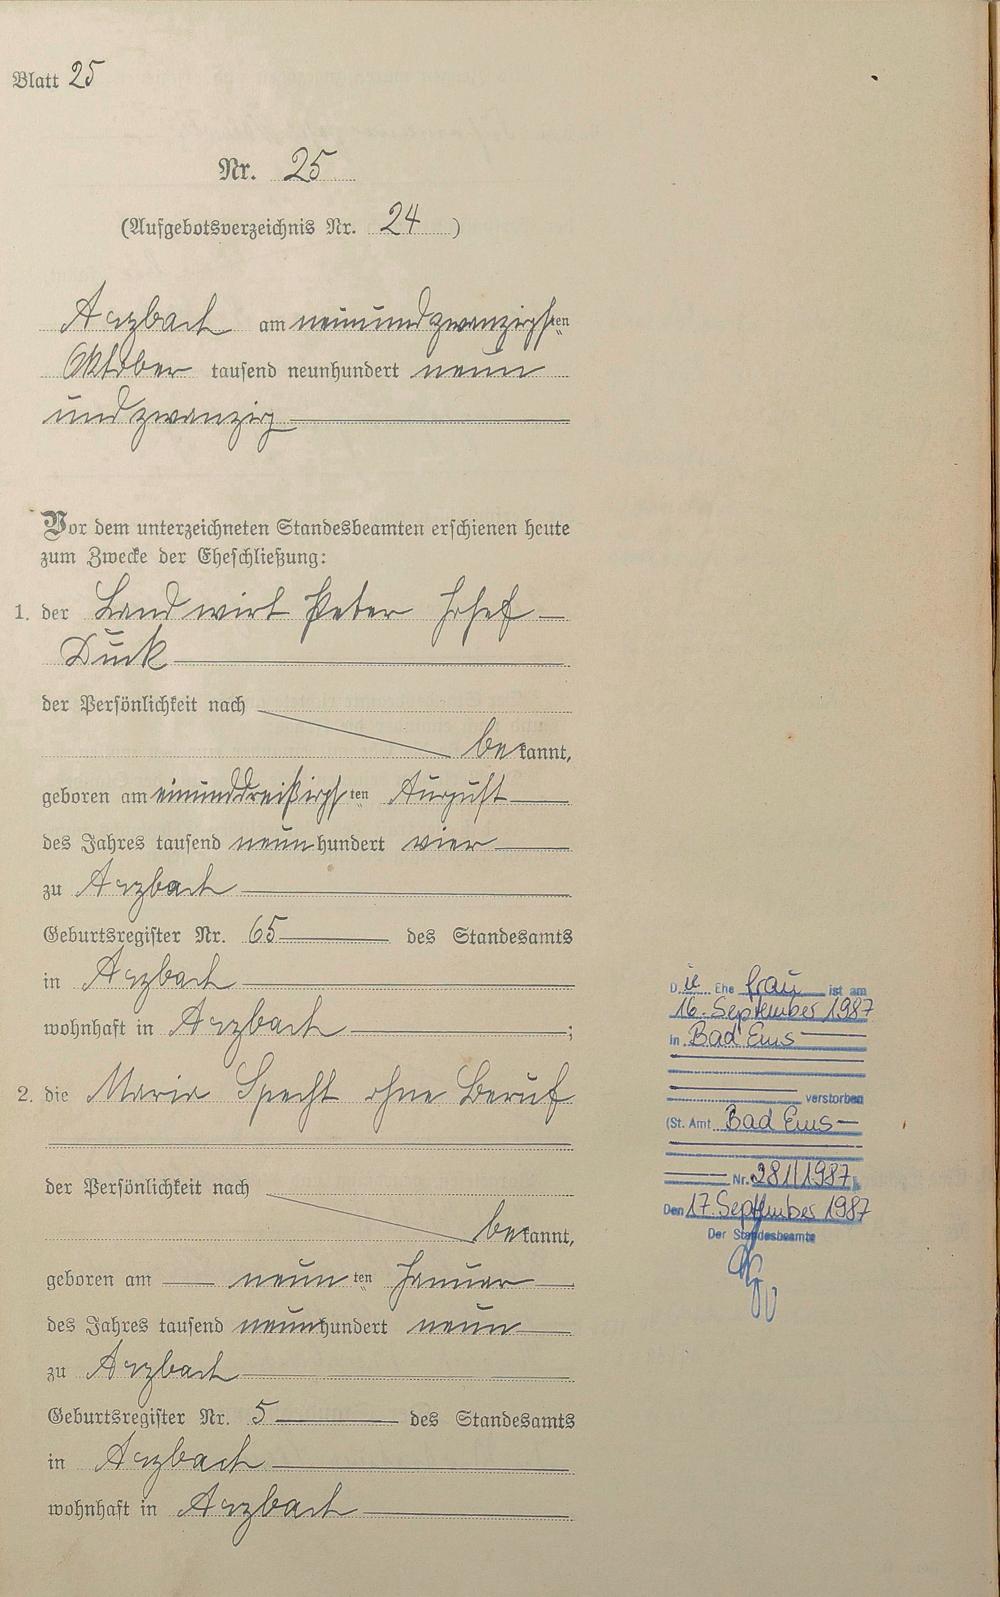 Blatt 25
Nr. 25
(Aufgebotsverzeichnis Nr. 24)
Arzbach am neunundzwanzigsten
Oktober tausend neunhundert neun
undzwanzig
Vor dem unterzeichneten Standesbeamten erschienen heute
zum Zwecke der Eheschließung:
1. der Landwirt Peter Josef
Duck
der Persönlichkeit nach
bekannt,
geboren am einunddreißigsten August
des Jahres tausend neunhundert vier
zu Arzbach
Geburtsregister Nr. 65 des Standesamts
in Arzbach
wohnhaft in Arzbach ;
2. die Maria Specht ohne Beruf
der Persönlichkeit nach
bekannt,
geboren am neunten Januar
des Jahres tausend neunhundert neun
zu Arzbach
Geburtsregister Nr. 5 des Standesamts
in Arzbach
wohnhaft in Arzbach
Die Ehefrau ist am
16. September 1987
in Bad Ems
verstorben
(St. Amt Bad Ems
Nr. 281/1987)
Den 17. September 1987
Der Standesbeamte